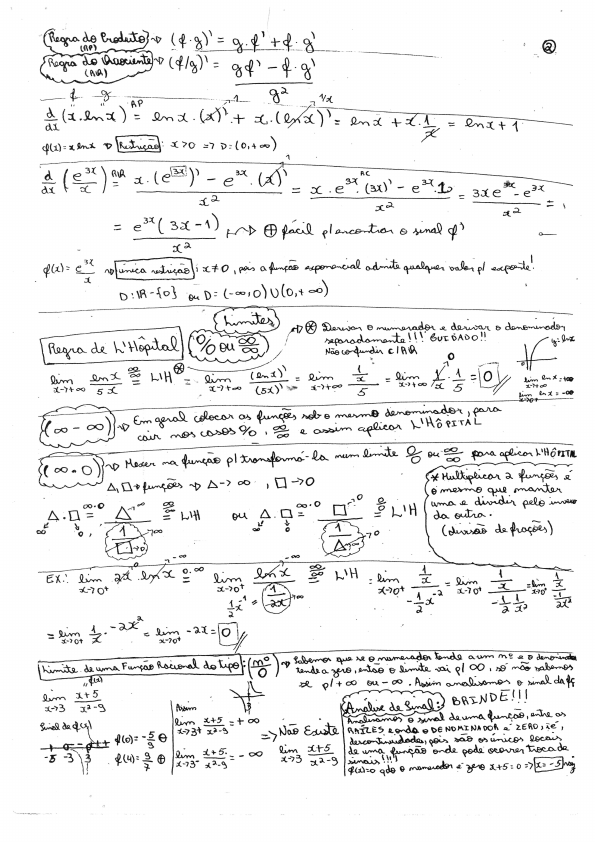 Regra do Produto (RP) → (f·g)' = g·f' + f·g'
②
Regra do Quociente (RQ) → (f/g)' = (gf' - f·g') / g²
f g
d/dx (x·ln x) =^RP ln x·(x)' + x·(ln x)' = ln x + x·1/x = ln x + 1
f(x) = x ln x → Restrição: x>0 => D=(0,+∞)
d/dx (e^{3x}/x) =^RQ (x·(e^{3x})' - e^{3x}·(x)') / x² =^RC (x·e^{3x}·(3x)' - e^{3x}·1) / x² = (3x e^{3x} - e^{3x}) / x² =
= e^{3x}(3x-1) / x² → ⊕ fácil p/ encontrar o sinal f'
f(x) = e^{3x}/x → única restrição: x≠0, pois a função exponencial admite qualquer valor p/ expoente!
D: IR-{0} ou D=(-∞,0)∪(0,+∞)
Limites
Regra de L'Hôpital 0/0 ou ∞/∞ → ⊛ Derivar o numerador e derivar o denominador
separadamente!!! CUIDADO!!
Não confundir c/ RQ
y=ln x
lim x→+∞ ln x / 5x =^{∞/∞} L'H⊛ = lim x→+∞ (ln x)' / (5x)' = lim x→+∞ (1/x) / 5 = lim x→+∞ 1/x · 1/5 = 0
lim x→+∞ ln x = +∞
lim x→0⁺ ln x = -∞
(∞-∞) → Em geral colocar as funções sob o mesmo denominador, para
cair nos casos 0/0, ∞/∞ e assim aplicar L'HÔPITAL
(∞·0) → Mexer na função p/ transformá-la num limite 0/0 ou ∞/∞ para aplicar L'HÔPITAL
△, □ → funções △→∞, □→0
△·□ =^{∞·0} △ / (1/□) =^{∞/∞} L'H ou △·□ =^{∞·0} □ / (1/△) =^{0/0} L'H
* Multiplicar 2 funções é
o mesmo que manter
uma e dividir pelo inverso
da outra.
(divisão de frações)
EX.: lim x→0⁺ 2x·ln x =^{0·∞} lim x→0⁺ ln x / (1/2x) =^{∞/∞} L'H = lim x→0⁺ (1/x) / (-1/2 x⁻²) = lim x→0⁺ (1/x) / (-1/2 · 1/x²) = lim x→0⁺ (1/x) / (-1/2x²)
1/2 x⁻¹
= lim x→0⁺ 1/x · -2x² = lim x→0⁺ -2x = 0
Limite de uma Função Racional do tipo: (nº/0) → Sabemos que se o numerador tende a um nº e o denominador
tende a zero, então o limite vai p/ ∞, só não sabemos
se p/ +∞ ou -∞. Assim analisamos o sinal da fç
lim x→3 (x+5)/(x²-9)
f(x)
Análise de Sinal: BRINDE!!!
Analisamos o sinal de uma função, entre as
RAÍZES e onde o DENOMINADOR é ZERO, i.e.,
descontinuidades, pois são os únicos locais
de uma função onde pode ocorrer troca de
sinais!!!
f(x)=0 qdo o numerador é zero x+5=0 => x=-5
Sinal de f(x)
-5 -3 3
f(0) = -5/9 ⊖
f(4) = 9/7 ⊕
Assim
lim x→3⁺ (x+5)/(x²-9) = +∞
lim x→3⁻ (x+5)/(x²-9) = -∞
=> Não Existe
lim x→3 (x+5)/(x²-9)